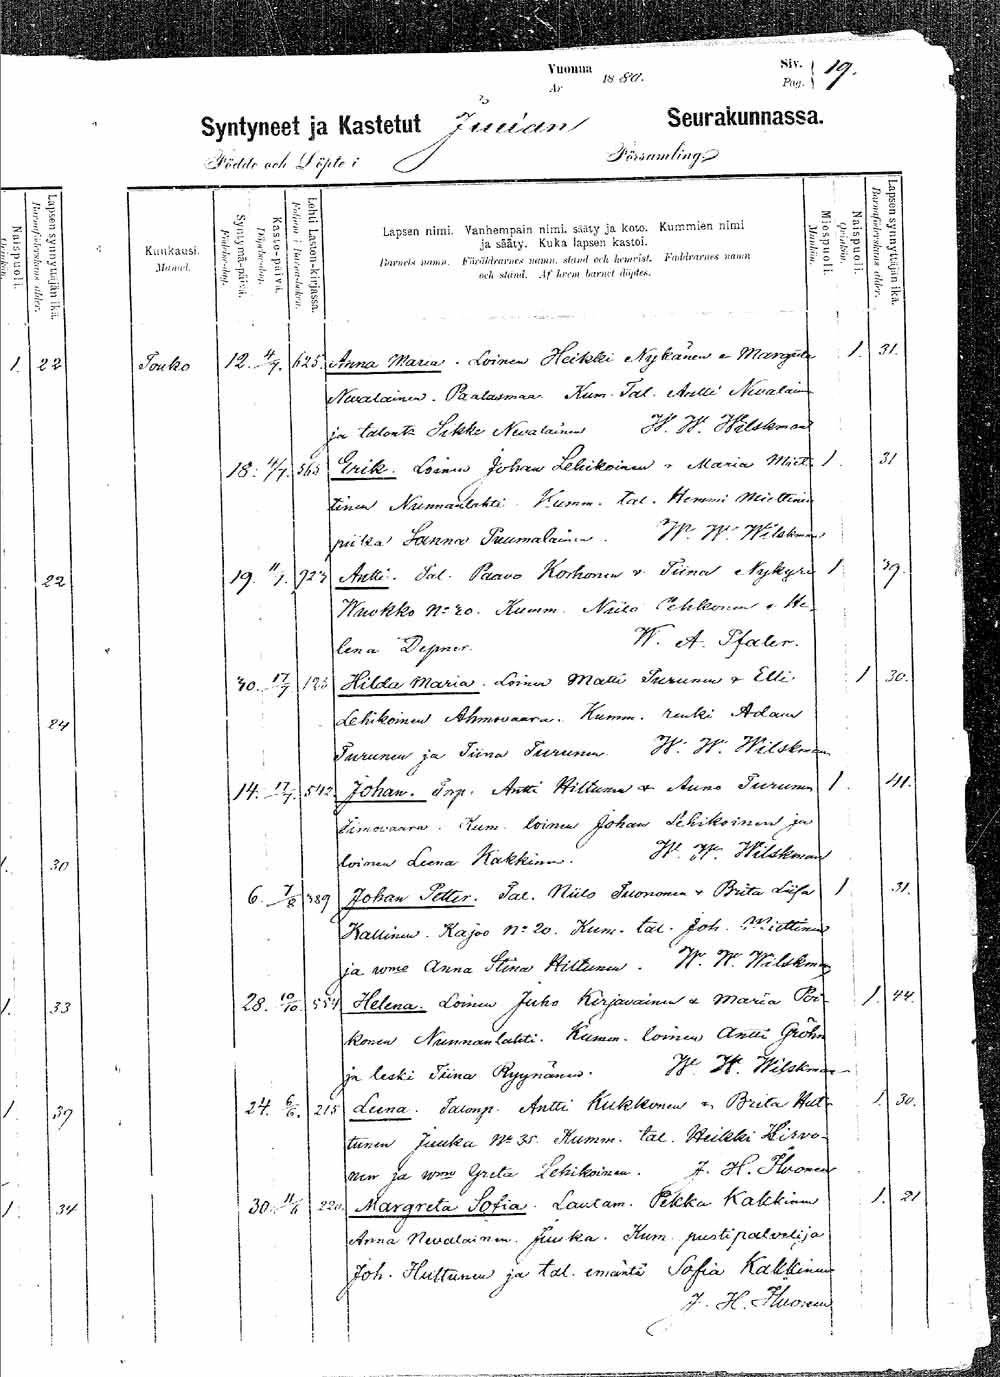 Vuonna 1880. Siv. 19.
År Pag.
Syntyneet ja Kastetut Juuan Seurakunnassa.
Födde och Döpte i Församling
Kuukausi.
Månad.
Syntymä-päivä.
Födelse-dag.
Kaste-päivä.
Döpelse-dag.
Lehti Lasten-kirjassa.
Folium i Barnaboken.
Lapsen nimi. Vanhempain nimi, sääty ja koto. Kummien nimi
ja sääty. Kuka lapsen kastoi.
Barnets namn. Föräldrarnes namn, stånd och hemvist. Faddrarnes namn
och stånd. Af hvem barnet döptes.
Miespuoli.
Mankön.
Naispuoli.
Qvinkön.
Lapsen synnyttäjän ikä.
Barnaföderskans ålder.
Naispuoli.
Qvinkön.
Lapsen synnyttäjän ikä.
Barnaföderskans ålder.
1. 22 Touko 12. 4/7. 625. Anna Maria. Loinen Heikki Nykänen & Margreta 1. 31.
Nevalainen. Paalasmaa. Kum. Tal. Antti Nevalain
ja talontr Nevalainen W. W. Wilskman
18. 4/7. 565 Erik. Loinen Johan Lehikoinen & Maria Miet- 1. 31
tinen Nunnanlahti. Kumm. tal. Hemmi Miettinen
piika Sanna Puumalainen. W. W. Wilskman
22 19. 11/7. 723 Antti. Tal. Paavo Korhonen & Tiina Nykyri 1 39.
Wuokko No 20. Kumm. Niilo & He-
lena W. A. Pfaler.
30. 17/7 123 Hilda Maria. Loinen Matti Turunen & Elli 1 30.
24 Lehikoinen Ahmovaara. Kumm. renki Adam
Turunen ja Tiina Turunen W. W. Wilskman
14. 17/7. 542 Johan. Tnp. Antti Hiltunen & Anna Turunen 1. 41.
Timovaara. Kum. loinen Johan Lehikoinen ja
30 loinen Leena Kakkinen. W. W. Wilskman
6. 7/8 389 Johan Petter. Tal. Niilo Tuononen & Brita Liisa 1 31.
Kallinen. Kajoo No 20. Kum. tal. Joh. Miettinen
ja wmo Anna Stina Hiltunen. W. W. Wilskman
1. 33 28. 10/10. 554 Helena. Loinen Juho Kirjavainen & Maria Poi- 1. 44.
konen Nunnanlahti. Kumm. loinen Antti Gröhn
ja leski Tiina Ryynänen. W. W. Wilskman
1 39 24. 6/6. 215 Leena. Talonp. Antti Kukkonen & Brita Hut- 1. 30.
tunen Juuka No 35. Kumm. tal. Heikki Hirvo-
nen ja wmo Greta Lehikoinen. J. H. Huonen
1 34 30. 11/6 220. Margreta Sofia. Lautam. Pekka Kakkinen 1. 21
Anna Nevalainen. Juuka. Kum. pustipalvelija
Joh. Huttunen ja tal. emäntä Sofia Kakkinen
J. H. Huonen